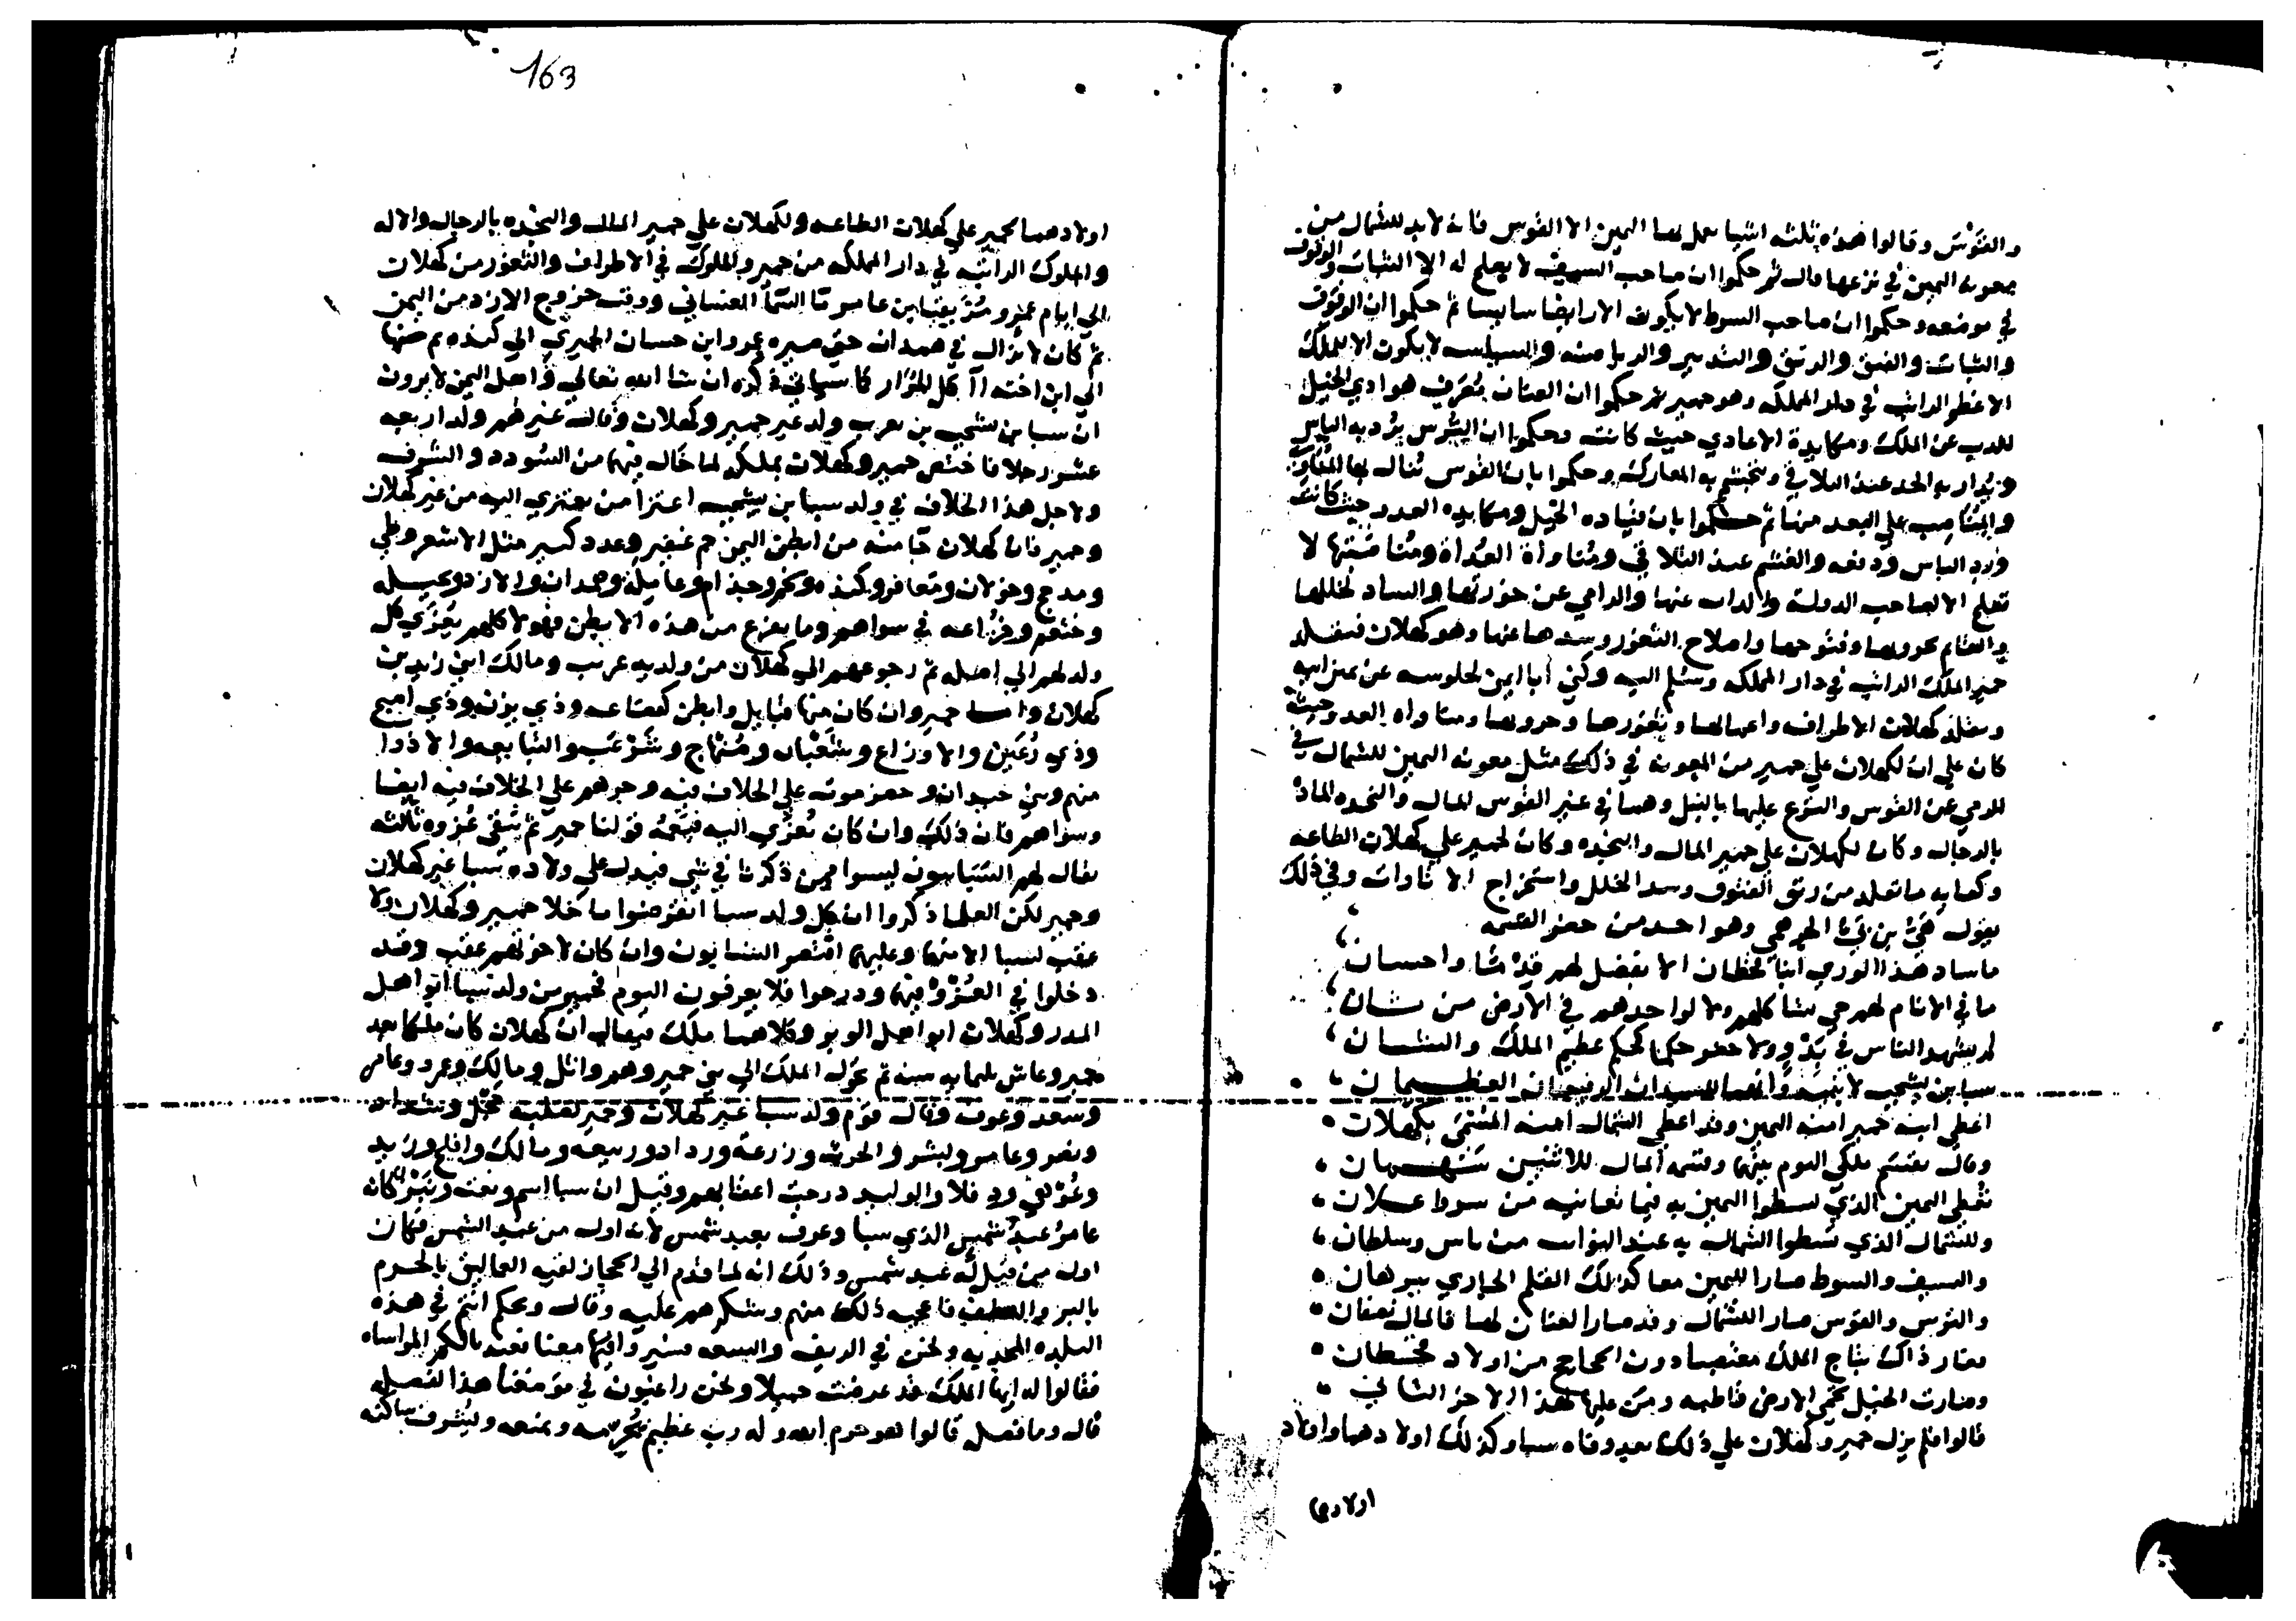 والقوس وقالوا هذه ثلثه اشيا عمل بها اليمين الا القوس فانه لابد للشمال من
معونه اليمين في نزعها قال ثم حكموا ان صاحب السيف لا يصلح له الا الثبات والوقوف
في موضعه وحكموا ان صاحب السوط لا يكون الا رايضا سايسا ثم حكموا ان الوقوف
والثبات والفتق والرتق والتدبير والرياضه والسياسه لا يكون الا للملك
الاعظم الراتب في دار المملكه وهو حمير ثم حكموا ان العنان يُعرف هوادي الخيل
للدب عن الملك ومكابدة الاعادي حيث كانت وحكموا ان الترس يرد به الباس
ويدار به الحد عند التلاقي وتخبثم به المعارك وحكموا بان القوس تُنال بها
والمناصب على البعد منها ثم حكموا بان قياده الخيل ومكابده العدو حيث كانت
ورد الباس ودفعه والغشم عند التلاقي ومُناواة العُداة ومُناصَبتها لا
تصلح الا لصاحب الدوله والداب عنها والرامي عن حوزتها والساد لخللها
والقايم بحروبها وفتوحها واصلاح الثغور وسدها عنها وهو كهلان فتقلد
حمير الملك الراتب في دار المملكه وسُلم اليه وكني أبا ايمن لجلوسه عن يمين ابيه
وتقلد كهلان الاطراف واعمالها وثغورها وحروبها ومناواه العدو حيث
كان علي ان لكهلان علي حمير من المعونه في ذلك مثل معونه اليمين للشمال في
الرمي عن القوس والنزع عليها بالنبل وهما في غير القوس المال والنجده الماد
بالرجال وكان لكهلان علي حمير المال والنجده وكان لحمير علي كهلان الطاعه
وكفايه ما تقلد من رتق الفتوق وسد الخلل واستخراج الاتاوات وفي ذلك
يقول هَيّ بن بَيّ الجرهمي وهو احد من حضر القسمه
ما ساد هذا الوري ابنا لقحطان الا بفضل لهم قدمًا واحسان
ما في الانام لهم حي يشاكلهم ولا لواحدهم في الارض من شان
لم يشهد الناس في بَدْوٍ ولا حضر حكما كحكم عظيم الملك والشان
سبا بن يشجب لابنيه وانهما للسيدان الرفيعان العظيمان
اعطي ابنه حميرا منه اليمين وقد اعطي الشمال ابنه المُسَمّى بكهلان
وقال يقتسم ملكي اليوم بينها وقسمه المال للاثنين سهمان
تعطي اليمين الذي تسطوا اليمين به فيما تعانيه من سوط علان
وللشمال الذي تسطوا الشمال به عند الهوات من باس وسلطان
والسيف والسوط صارا لليمين معا كذلك القلم الجاري ببرهان
والترس والقوس صار للشمال وقد صار العنان لها فالمال نصفان
فحاز ذاك بتاج الملك معتصبا دون الجحاجح من اولاد قحطان
وصارت الخيل تحمي الارض قاطبه ومن عليها لهذا الاخر الثاني
قالوا فلم يزل حمير وكهلان علي ذلك بعد وفاه سبا وكذلك اولادهما واولاد
اولادهما
163
اولادهما لحمير علي كهلان الطاعه ولكهلان علي حمير الملك والنجده بالرجال والاله
والملوك الراتبه في دار المملكه من حمير والملوك في الاطراف والثغور من كهلان
الي ايام عمرو مُزيقيا بن عامر ما السَمآ الغساني ووقت خروج الازد من اليمن
ثم كان لا يزال في همدان حتى صيره عمرو ابن حسان الحميري الي كنده ثم منها
الي ابن اخته اآ كل المُرَار كما سياتي ذكره ان شا الله تعالي واهل اليمن لا يرون
ان سبا بن يشجب بن يعرب ولد غير حمير وكهلان وقال غيرهم ولد اربعه
عشر رجلا فاختص حمير وكهلان بملكه لما خال فيها من السُودد والشرف
ولاجل هذا الخلاف في ولد سبا بن يشجب اعتزا من يعتزي اليه من غير كهلان
وحمير فان كهلان حامنه من ابطن اليمن جم غفير وعدد كبير مثل الاشعر وطي
ومدحج وخولان ومعافر وكنده ولخم وجذام وعامله وهمدان والازد وبجيله
وخثعم وخزاعه في سواهم وما يفرع من هذه الابطن فهولا كلهم يعزَي كل
ولد لهم الي اصله ثم رجوعهم الي كهلان من ولديه عريب ومالك ابني زيد بن
كهلان واما حمير وان كان منها قبايل وابطن كقضاعه وذي يزن وذي اصبح
وذي رُعَين والاوزاع وشَعْبان ومُنْهاج وشَرْعَب والتبابعه والاذوا
منهم وبني خيدان وحضرموت علي الخلاف فيه وجرهم علي الخلاف فيه ايضا
وسواهم فان ذلك وان كان تُعزي اليه فيَعمّه قولنا حمير ثم تبقى عُزوه ثالثه
يقال لهم السَبَاييون ليسوا ممن ذكرنا في شي فيدل على ولاده سبا غير كهلان
وحمير لكن العلما ذكروا ان كل ولد سبا انقرضوا ما خلا حمير وكهلان ولا
عقب لسبا الا منها وعليها اقتصر النسابون وان كان لاخوتهم عقب وقد
دخلوا في العُزْوَة فيها ودرجوا فلا يعرفون اليوم فحمير من ولد سبا ابو اهل
المدر وكهلان ابو اهل الوبر وكلاهما ملك فيقال ان كهلان كان ملكا بعد
حمير وعاش ثلثمايه سنه ثم تحول الملك الي بني حمير وهم وائل ومالك وعمرو وعامر
وسعد وعوف وقال قوم ولد سبا غير كهلان وحمير لصلبه وشداد
ونصر وعامر وبشر والحرث وزرعة وردادو ربيعه ومالك وافلح وزيد
وعُوْ بفي ود فلا والوليد درجت اعقابهم وقيل ان سبا اسم ونعت ونَبَزٌ كانه
عامرُ عبدُ شمس الذي سبا وعرف بعبد شمس لانه اول من عبد الشمس فكان
اول من قيل له عبد شمس وذلك انه لما قدم الي الحجاز لقيه العماليق بالحرم
بالبر واللطف فاعجبه ذلك منهم وشكرهم عليه وقال ويحكم انتم في هذه
البلده المجدبه ونحن في الريف والسعه فسيروا اليها معنا نعد بالكم المواساه
فقالوا له ايها الملك قد عرضت جميلا ونحن راغبون في موضعنا هذا لفضله
قال وما فضله قالوا هو حرم الله وله رب عظيم يُحَرّمه ويمنعه ويُشرف ساكنه